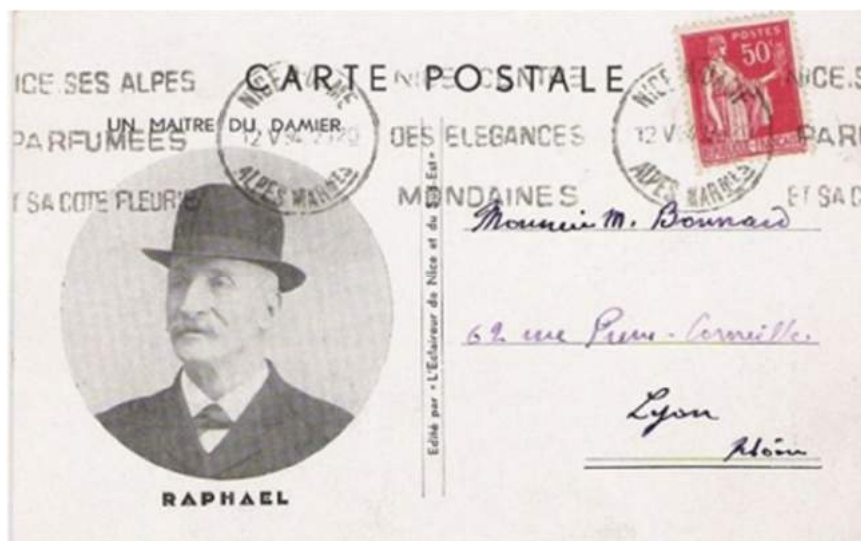 CARTE POSTALE
UN MAITRE DU DAMIER
NICE.SES ALPES
PARFUMÉES
ET SA COTE FLEURIE
NICE
12 V 34
ALPES MARMES
NICE CENTRE
DES ELEGANCES
MONDAINES
NICE
12 V
ALPES MARMES
NICE.S
PARF
ET SA CO
POSTES
50c
RAPHAEL
Edité par "L'Eclaireur de Nice et du Sud-Est"
Monsieur M. Bonnard
62 rue Pierre-Corneille.
Lyon
Rhône